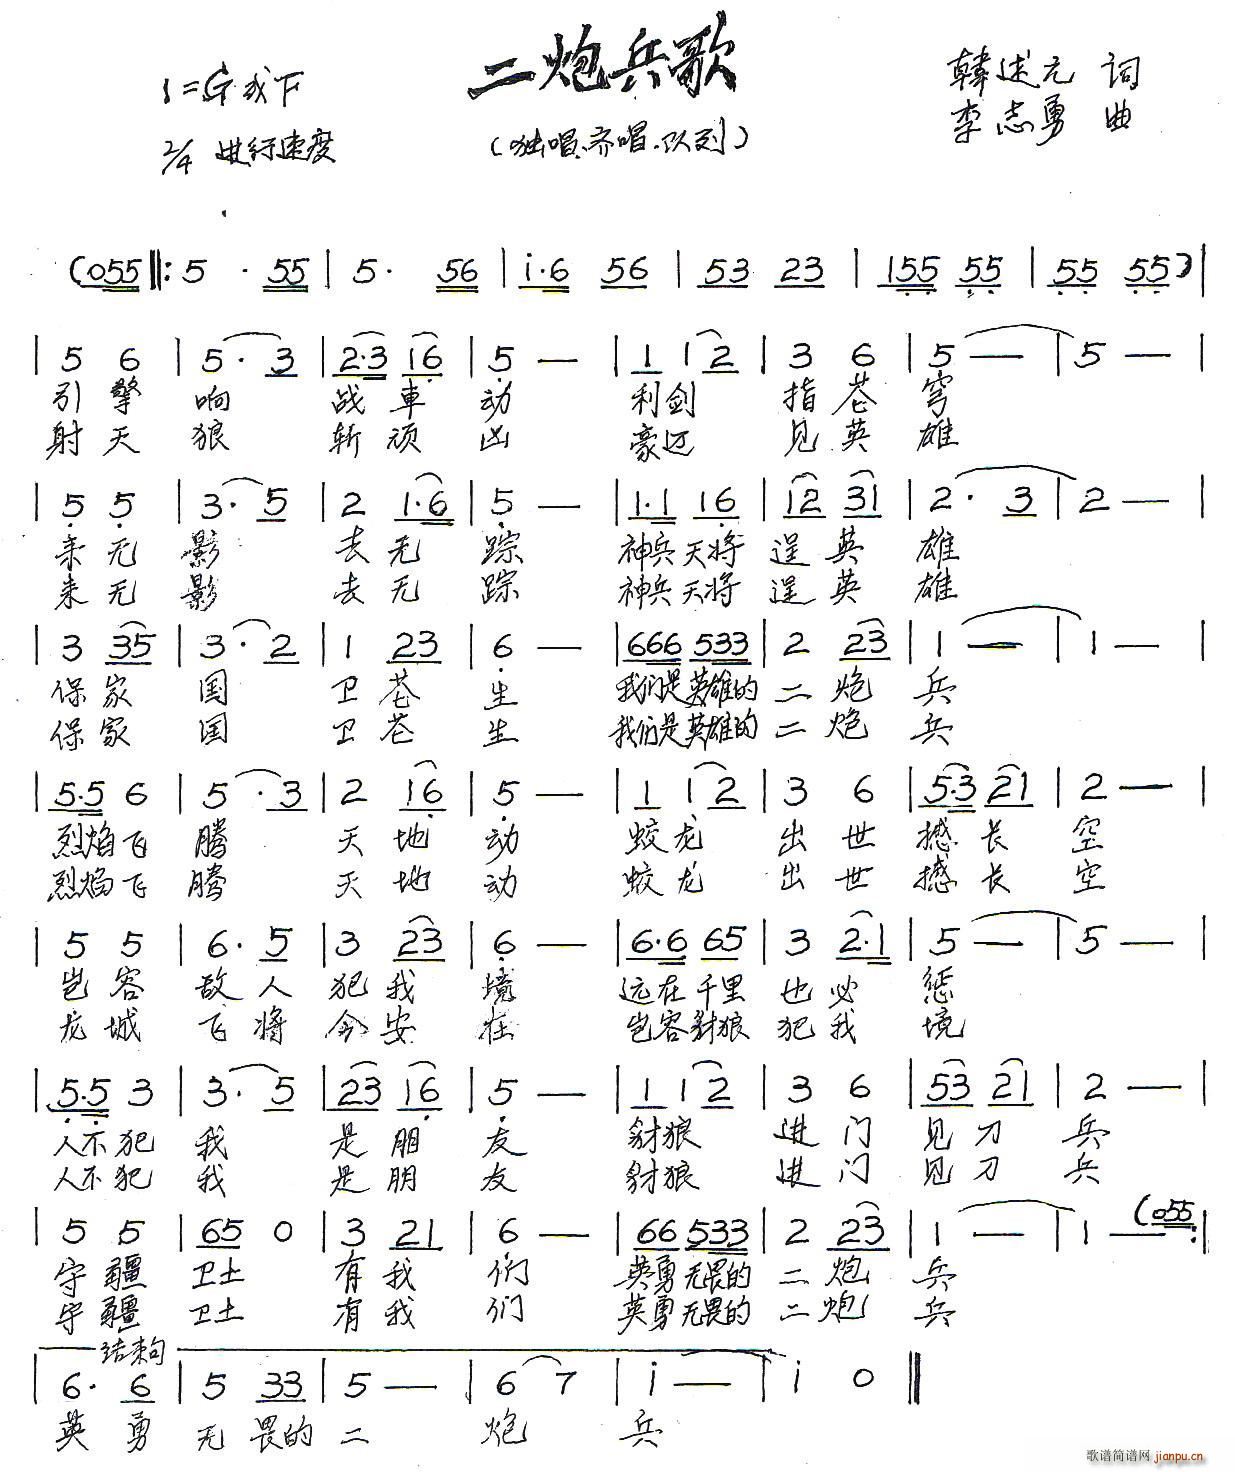 二炮兵歌
1=G或F
2/4 进行速度
（独唱、齐唱、队列）
韩述元 词
李志勇 曲
(055 ‖: 5 · 55 | 5 · 56 | i·6 56 | 53 23 | 155 55 | 55 55) |
| 5 6 | 5 · 3 | 2·3 16 | 5 — | 1 1 2 | 3 6 | 5 — | 5 — |
引擎 响 战車 动 利剑 指苍 穹
射天 狼 斩顽 凶 豪迈 见英 雄
| 5 5 | 3 · 5 | 2 1·6 | 5 — | 1·1 16 | 12 31 | 2 · 3 | 2 — |
来无 影 去无 踪 神兵天将 逞英 雄
来无 影 去无 踪 神兵天将 逞英 雄
| 3 35 | 3 · 2 | 1 23 | 6 — | 666 533 | 2 23 | 1 — | 1 — |
保家 国 卫苍 生 我们是英雄的 二炮 兵
保家 国 卫苍 生 我们是英雄的 二炮 兵
| 5·5 6 | 5 · 3 | 2 16 | 5 — | 1 1 2 | 3 6 | 5·3 21 | 2 — |
烈焰飞 腾 天地 动 蛟龙 出世 撼长 空
烈焰飞 腾 天地 动 蛟龙 出世 撼长 空
| 5 5 | 6 · 5 | 3 23 | 6 — | 6·6 65 | 3 2·1 | 5 — | 5 — |
岂容 敌人 犯我 境 远在千里 也必 惩
龙城 飞将 今安 在 岂容豺狼 犯我 境
| 5·5 3 | 3 · 5 | 23 16 | 5 — | 1 1 2 | 3 6 | 53 21 | 2 — |
人不犯 我 是朋 友 豺狼 进门 见刀 兵
人不犯 我 是朋 友 豺狼 进门 见刀 兵
| 5 5 | 65 0 | 3 21 | 6 — | 66 533 | 2 23 | 1 — | 1 — (055 :|
守疆 卫土 有我 们 英勇无畏的 二炮 兵
守疆 卫土 有我 们 英勇无畏的 二炮 兵
结束句
| 6 · 6 | 5 33 | 5 — | 6 7 | i — | i 0 ‖
英勇 无畏的 二 炮 兵
歌谱简谱网 jianpu.cn